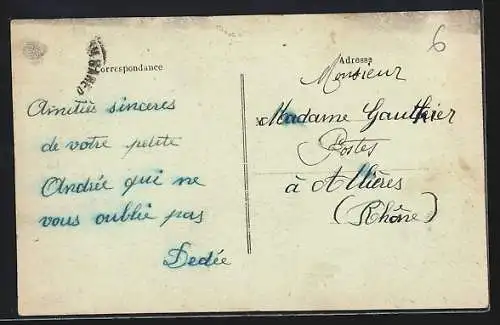 Correspondance
Amitiés sinceres
de votre petite
Andrée qui ne
vous oublie pas
Dedée
6
Adresse
Monsieur
M Madame Gauthier
Postes
à Allières
(Rhône)